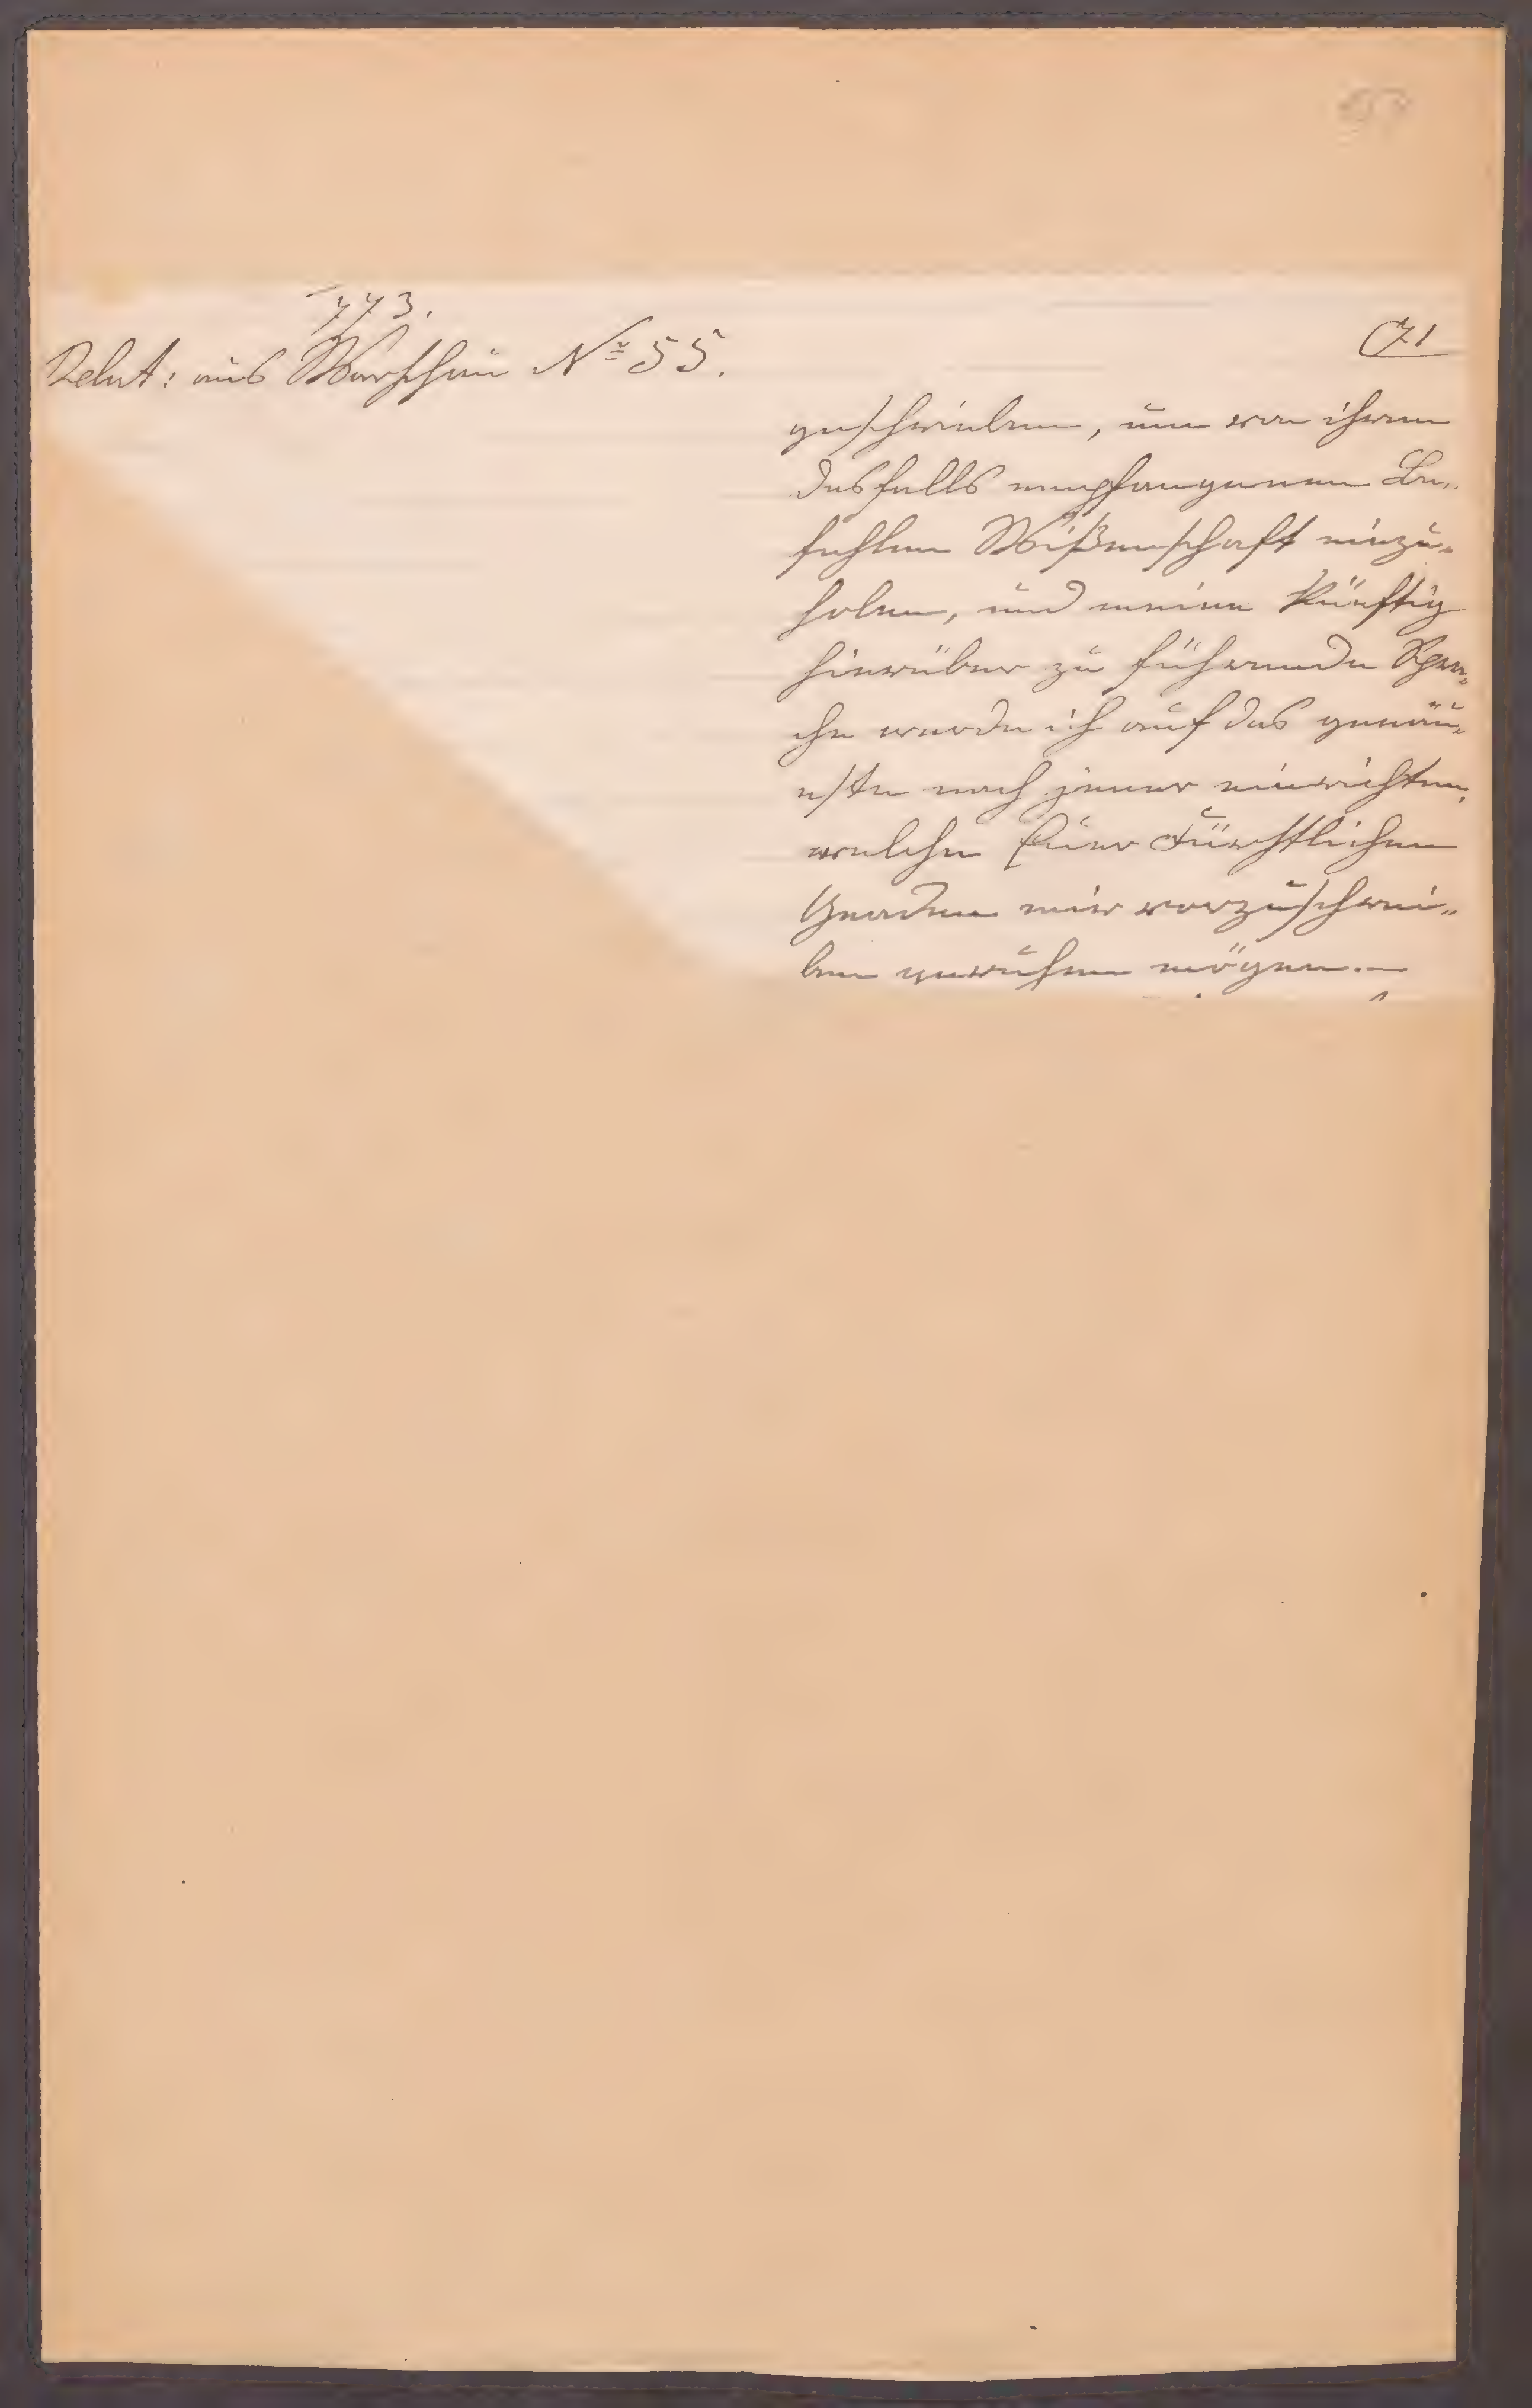 773.
Relat: aus Warschau No 55.
71
geschrieben, um von ihren
desfalls empfangenen Be„
fehlen Wißenschaft einzu„
holen, und meine künftig
hierüber zu führende Spra„
che werde ich auf das genau„
este nach jener einrichten,
welche Euer Fürstlichen
Gnaden mir vorzuschrei„
ben geruhen mögen.—